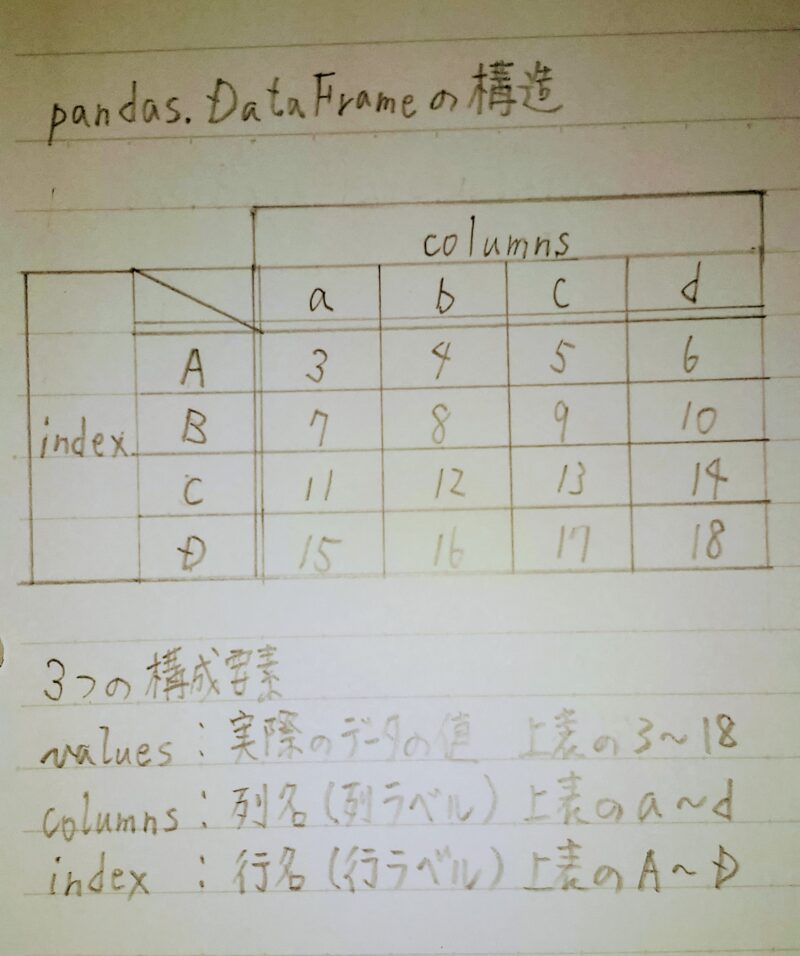 pandas.DataFrameの構造
columns
a b c d
A 3 4 5 6
index B 7 8 9 10
C 11 12 13 14
D 15 16 17 18
3つの構成要素
values：実際のデータの値 上表の3～18
columns：列名(列ラベル) 上表のa～d
index：行名(行ラベル) 上表のA～D